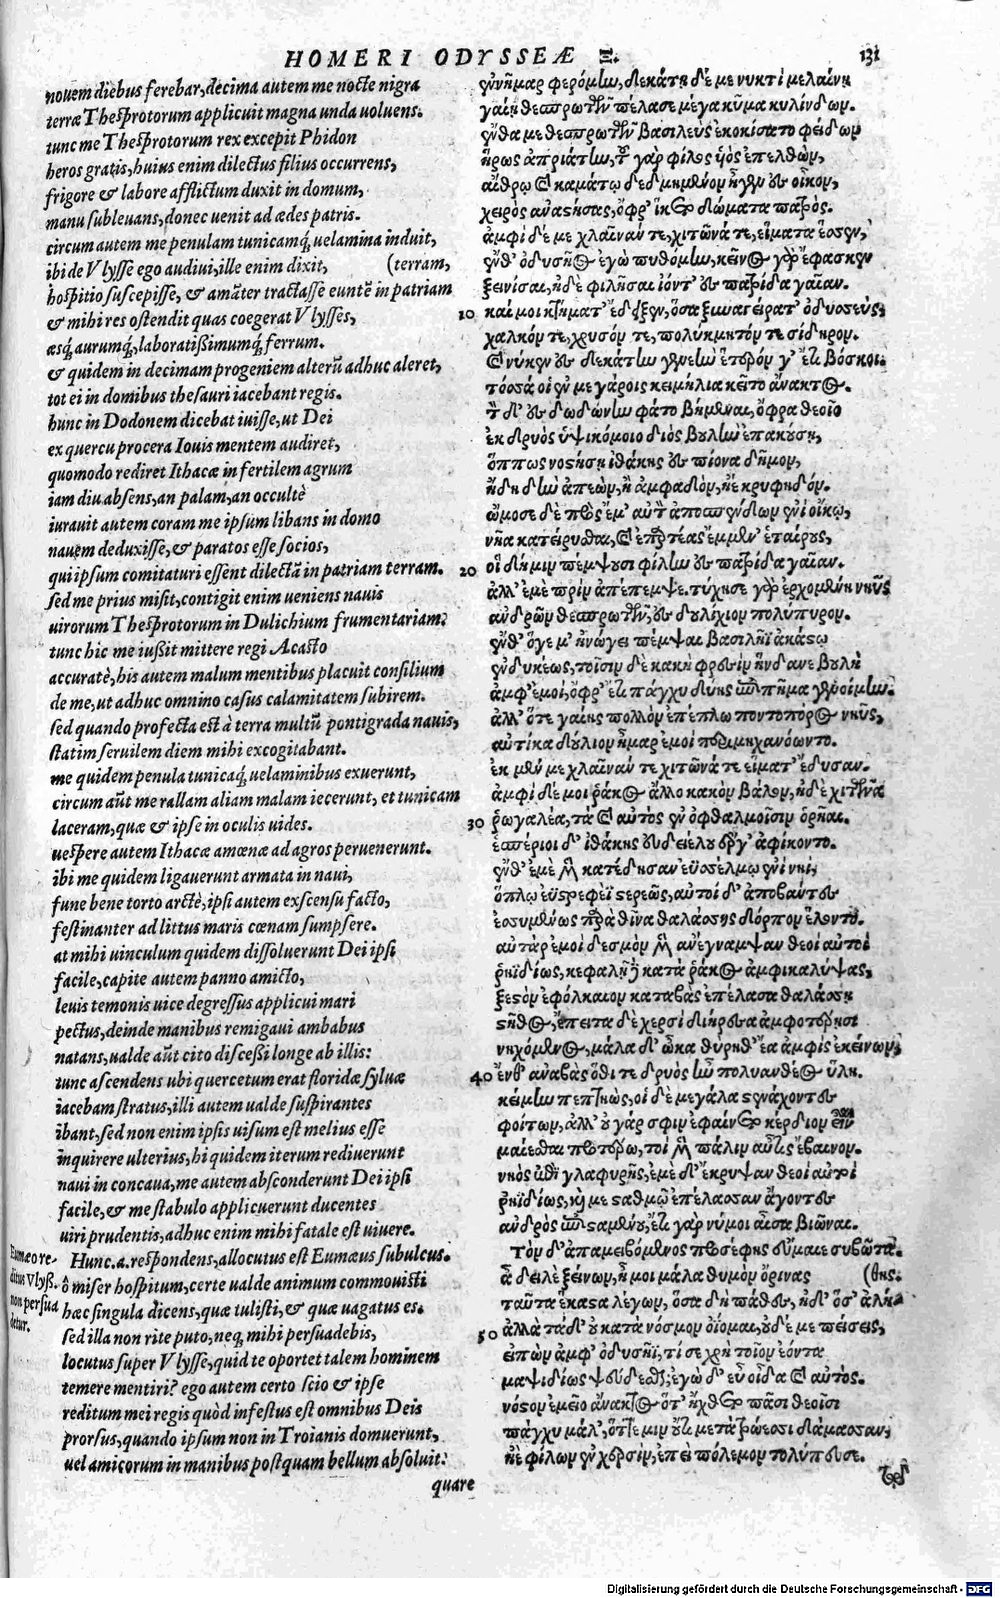 HOMERI ODYSSEÆ Ξ. 131
nouem diebus ferebar, decima autem me nocte nigra
terræ Thesprotorum applicuit magna unda uoluens.
tunc me Thesprotorum rex excepit Phidon
heros gratis, huius enim dilectus filius occurrens,
frigore & labore afflictum duxit in domum,
manu subleuans, donec uenit ad ædes patris.
circum autem me penulam tunicamq́, uelamina induit,
ibi de Vlysse ego audiui, ille enim dixit, (terram,
hospitio suscepisse, & amãter tractasse euntẽ in patriam
& mihi res ostendit quas coegerat Vlysses,
æsq́ aurumq́, laboratißimumq́ ferrum.
& quidem in decimam progeniem alterũ adhuc aleret,
tot ei in domibus thesauri iacebant regis.
hunc in Dodonem dicebat iuisse, ut Dei
ex quercu procera Iouis mentem audiret,
quomodo rediret Ithacæ in fertilem agrum
iam diu absens, an palam, an occultè
iurauit autem coram me ipsum libans in domo
nauem deduxisse, & paratos esse socios,
qui ipsum comitaturi essent dilectã in patriam terram.
sed me prius misit, contigit enim ueniens nauis
uirorum Thesprotorum in Dulichium frumentariam:
tunc hic me iußit mittere regi Acasto
accuratè, his autem malum mentibus placuit consilium
de me, ut adhuc omnino casus calamitatem subirem.
sed quando profecta est à terra multũ pontigrada nauis,
statim seruilem diem mihi excogitabant.
me quidem penula tunicaq́ uelaminibus exuerunt,
circum aũt me rallam aliam malam iecerunt, et tunicam
laceram, quæ & ipse in oculis uides.
uespere autem Ithacæ amœnæ ad agros peruenerunt.
ibi me quidem ligauerunt armata in naui,
fune bene torto arctè, ipsi autem exscensu facto,
festinanter ad littus maris cœnam sumpsere.
at mihi uinculum quidem dissoluerunt Dei ipsi
facile, capite autem panno amicto,
leuis temonis uice degressus applicui mari
pectus, deinde manibus remigaui ambabus
natans, ualde aũt cito disceßi longe ab illis:
tunc ascendens ubi quercetum erat floridæ syluæ
iacebam stratus, illi autem ualde suspirantes
ibant, sed non enim ipsis uisum est melius esse
inquirere ulterius, hi quidem iterum rediuerunt
naui in concaua, me autem absconderunt Dei ipsi
facile, & me stabulo applicuerunt ducentes
uiri prudentis, adhuc enim mihi fatale est uiuere.
Hunc.a. respondens, allocutus est Eumæus subulcus.
ô miser hospitum, certe ualde animum commouisti
hæc singula dicens, quæ tulisti, & quæ uagatus es.
sed illa non rite puto, neq; mihi persuadebis,
locutus super Vlysse, quid te oportet talem hominem
temere mentiri? ego autem certo scio & ipse
reditum mei regis quòd infestus est omnibus Deis
prorsus, quando ipsum non in Troianis domuerunt,
uel amicorum in manibus postquam bellum absoluit:
quare
Eumæo re-
ditus Vlyß.
non persua
detur.
ἐννῆμαρ φερόμην, δεκάτῃ δέ με νυκτὶ μελαίνῃ
γαίῃ θεσπρωτῶν πέλασε μέγα κῦμα κυλίνδων.
ἔνθα με θεσπρωτῶν βασιλεὺς ἐκομίσατο φείδων
ἥρως ἀπριάτην, τοῦ γὰρ φίλος υἱὸς ἐπελθὼν,
αἴθρῳ καὶ καμάτῳ δεδμημένον ἦγεν ἐς οἶκον,
χειρὸς ἀναστήσας, ὄφρ' ἵκετο δώματα πατρός.
ἀμφὶ δέ με χλαῖνάν τε, χιτῶνά τε, εἵματα ἕσσεν,
ἔνθ' ὀδυσῆος ἐγὼ πυθόμην, κεῖνος γὰρ ἔφασκεν
ξεινίσαι, ἠδὲ φιλῆσαι ἰόντ' ἐς πατρίδα γαῖαν.
10 καί μοι κτήματ' ἔδειξεν, ὅσα ξυναγείρατ' ὀδυσσεύς,
χαλκόν τε, χρυσόν τε, πολύκμητόν τε σίδηρον.
καί νύ κεν ἐς δεκάτην γενεὴν ἕτερόν γ' ἔτι βόσκοι.
τόσσά οἱ ἐν μεγάροις κειμήλια κεῖτο ἄνακτος.
τὸν δ' ἐς δωδώνην φάτο βήμεναι, ὄφρα θεοῖο
ἐκ δρυὸς ὑψικόμοιο διὸς βουλὴν ἐπακούσῃ,
ὅππως νοστήσῃ ἰθάκης ἐς πίονα δῆμον,
ἤδη δὴν ἀπεὼν, ἢ ἀμφαδὸν, ἠὲ κρυφηδόν.
ὤμοσε δὲ πρὸς ἔμ' αὐτὸν ἀποσπένδων ἐνὶ οἴκῳ,
νῆα κατειρύσθαι, καὶ ἐπαρτέας ἔμμεν' ἑταίρους,
20 οἳ δή μιν πέμψουσι φίλην ἐς πατρίδα γαῖαν.
ἀλλ' ἐμὲ πρὶν ἀπέπεμψε. τύχησε γὰρ ἐρχομένη νηῦς
ἀνδρῶν θεσπρωτῶν, ἐς δουλίχιον πολύπυρον.
ἔνθ' ὅγε μ' ἠνώγει πέμψαι βασιλῆϊ ἀκάστῳ
ἐνδυκέως, τοῖσιν δὲ κακὴ φρεσὶν ἥνδανε βουλὴ
ἀμφ' ἐμοὶ, ὄφρ' ἔτι πάγχυ δύης ἐπὶ πῆμα γενοίμην.
ἀλλ' ὅτε γαίης πολλὸν ἐπέπλω ποντοπόρος νηῦς,
αὐτίκα δούλιον ἦμαρ ἐμοὶ περιμηχανόωντο.
ἐκ μέν με χλαῖνάν τε χιτῶνά τε εἵματ' ἔδυσαν.
ἀμφὶ δέ μοι ῥάκος ἄλλο κακὸν βάλον, ἠδὲ χιτῶνα
30 ῥωγαλέα, τὰ καὶ αὐτὸς ἐν ὀφθαλμοῖσιν ὅρηαι.
ἑσπέριοι δ' ἰθάκης εὐδειέλου ἔργ' ἀφίκοντο.
ἔνθ' ἐμὲ μὲν κατέδησαν ἐϋσσέλμῳ ἐνὶ νηῒ,
ὅπλῳ ἐϋστρεφέϊ στερεῶς, αὐτοὶ δ' ἀποβάντες
ἐσσυμένως παρὰ θῖνα θαλάσσης δόρπον ἕλοντο.
αὐτὰρ ἐμοὶ δεσμὸν μὲν ἀνέγναμψαν θεοὶ αὐτοὶ
ῥηϊδίως, κεφαλῇ δὲ κατὰ ῥάκος ἀμφικαλύψας,
ξεστὸν ἐφόλκαιον καταβὰς ἐπέλασα θαλάσσῃ
στῆθος, ἔπειτα δὲ χερσὶ διήρεσα ἀμφοτέρῃσι
νηχόμενος, μάλα δ' ὦκα θύρηθ' ἔα ἀμφὶς ἐκείνων,
40 ἔνθ' ἀναβὰς ὅθι τε δρυὸς ἦν πολυανθέος ὕλη.
κείμην πεπτηὼς, οἱ δὲ μεγάλα στενάχοντες
φοίτων, ἀλλ' οὐ γάρ σφιν ἐφαίνετο κέρδιον εἶναι
μαίεσθαι προτέρω, τοὶ μὲν πάλιν αὖτις ἔβαινον.
νηὸς ἐπὶ γλαφυρῆς, ἐμὲ δ' ἔκρυψαν θεοὶ αὐτοὶ
ῥηϊδίως, καί με σταθμῷ ἐπέλασσαν ἄγοντες
ἀνδρὸς ἐπισταμένου, ἔτι γάρ νύ μοι αἶσα βιῶναι.
Τὸν δ' ἀπαμειβόμενος προσέφης εὔμαιε συβῶτα.
ἆ δειλὲ ξείνων, ἦ μοι μάλα θυμὸν ὄρινας (θης.
ταῦτα ἕκαστα λέγων, ὅσα δὴ πάθες, ἠδ' ὅσ' ἀλή-
50 ἀλλὰ τάδ' οὐ κατὰ κόσμον ὀΐομαι, οὐδέ με πείσεις,
εἰπὼν ἀμφ' ὀδυσῆϊ, τί σε χρὴ τοῖον ἐόντα
μαψιδίως ψεύδεσθαι; ἐγὼ δ' εὖ οἶδα καὶ αὐτὸς.
νόστον ἐμεῖο ἄνακτος ὅτ' ἤχθετο πᾶσι θεοῖσι
πάγχυ μάλ', ὅττι μιν οὔτι μετὰ τρώεσσι δάμασσαν,
ἠὲ φίλων ἐν χερσὶν, ἐπεὶ πόλεμον τολύπευσε.
Digitalisierung gefördert durch die Deutsche Forschungsgemeinschaft - DFG